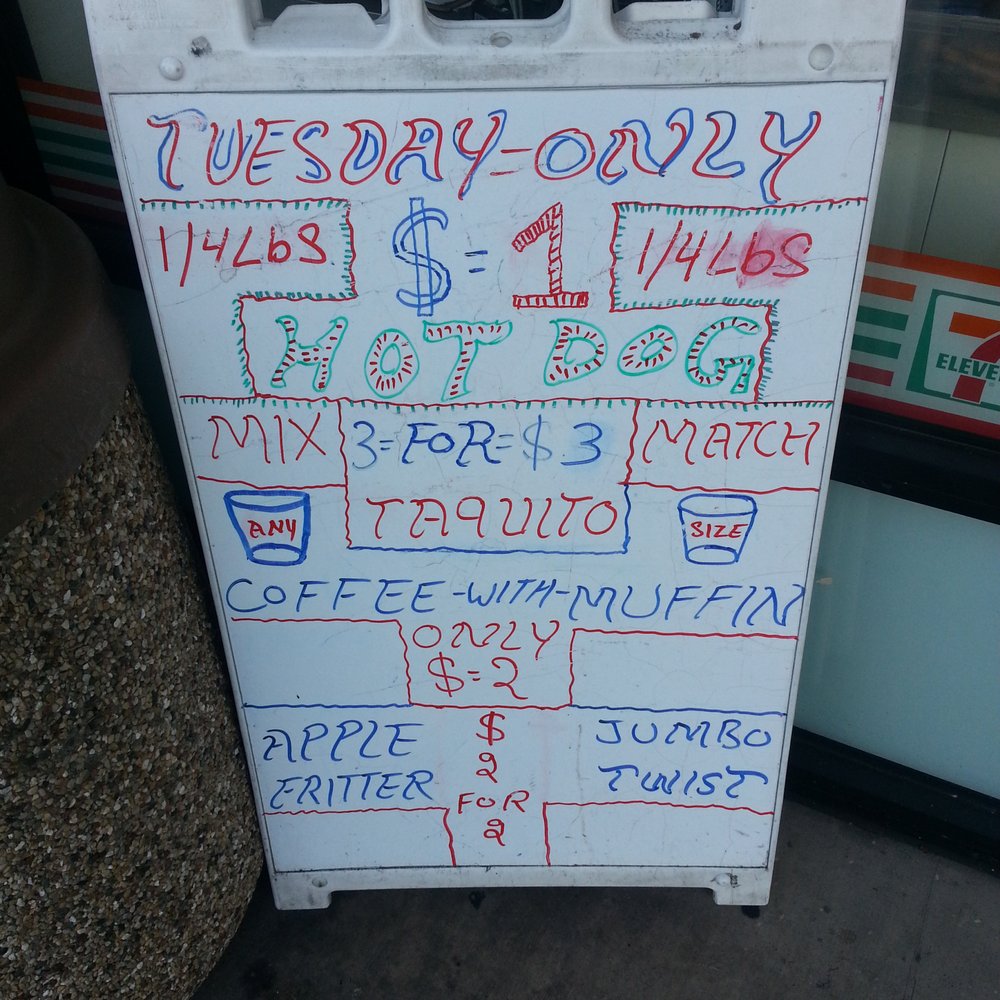 TUESDAY-ONLY
1/4LbS $=1 1/4LbS
HOT DOG
MIX 3=FOR=$3 MATCH
TAQUITO
ANY SIZE
COFFEE-WITH-MUFFIN
ONLY
$=2
APPLE $ JUMBO
FRITTER 2 TWIST
FOR
2
7
ELEVE